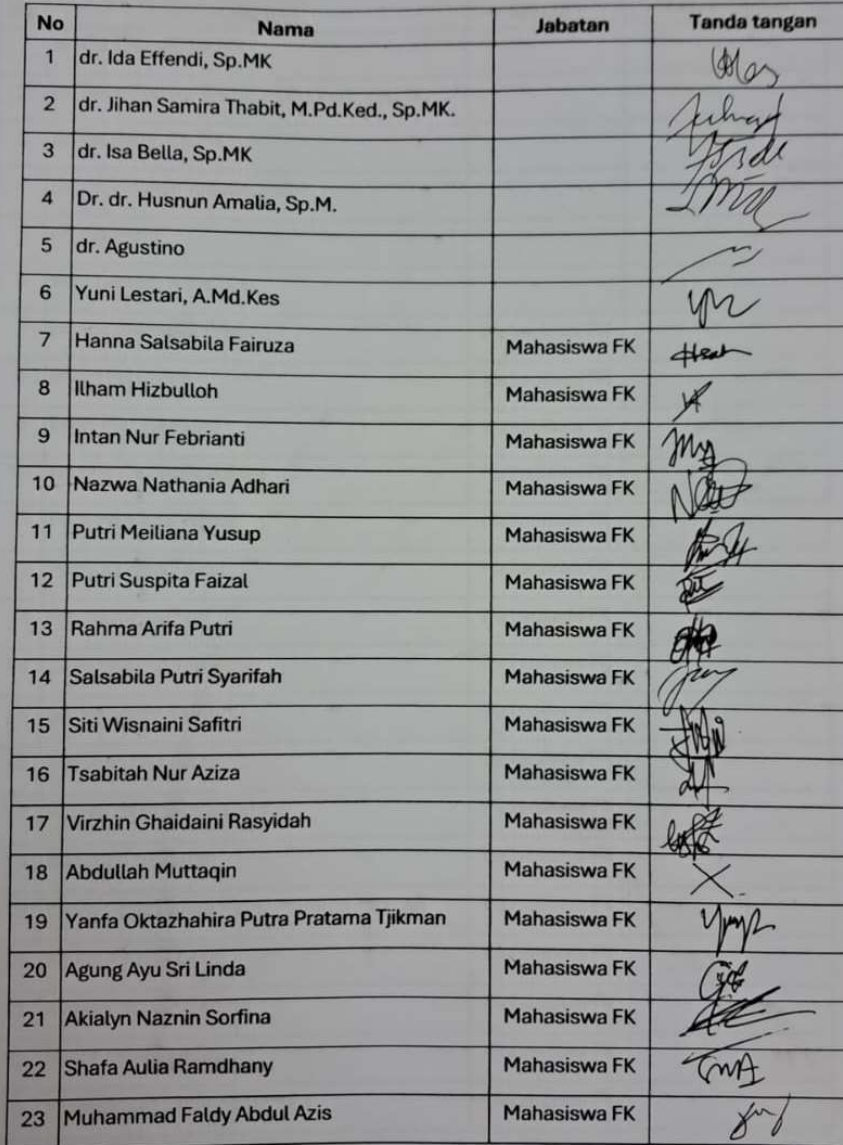 No Nama Jabatan Tanda tangan
1 dr. Ida Effendi, Sp.MK
2 dr. Jihan Samira Thabit, M.Pd.Ked., Sp.MK.
3 dr. Isa Bella, Sp.MK
4 Dr. dr. Husnun Amalia, Sp.M.
5 dr. Agustino
6 Yuni Lestari, A.Md.Kes
7 Hanna Salsabila Fairuza Mahasiswa FK
8 Ilham Hizbulloh Mahasiswa FK
9 Intan Nur Febrianti Mahasiswa FK
10 Nazwa Nathania Adhari Mahasiswa FK
11 Putri Meiliana Yusup Mahasiswa FK
12 Putri Suspita Faizal Mahasiswa FK
13 Rahma Arifa Putri Mahasiswa FK
14 Salsabila Putri Syarifah Mahasiswa FK
15 Siti Wisnaini Safitri Mahasiswa FK
16 Tsabitah Nur Aziza Mahasiswa FK
17 Virzhin Ghaidaini Rasyidah Mahasiswa FK
18 Abdullah Muttaqin Mahasiswa FK
19 Yanfa Oktazhahira Putra Pratama Tjikman Mahasiswa FK
20 Agung Ayu Sri Linda Mahasiswa FK
21 Akialyn Naznin Sorfina Mahasiswa FK
22 Shafa Aulia Ramdhany Mahasiswa FK
23 Muhammad Faldy Abdul Azis Mahasiswa FK